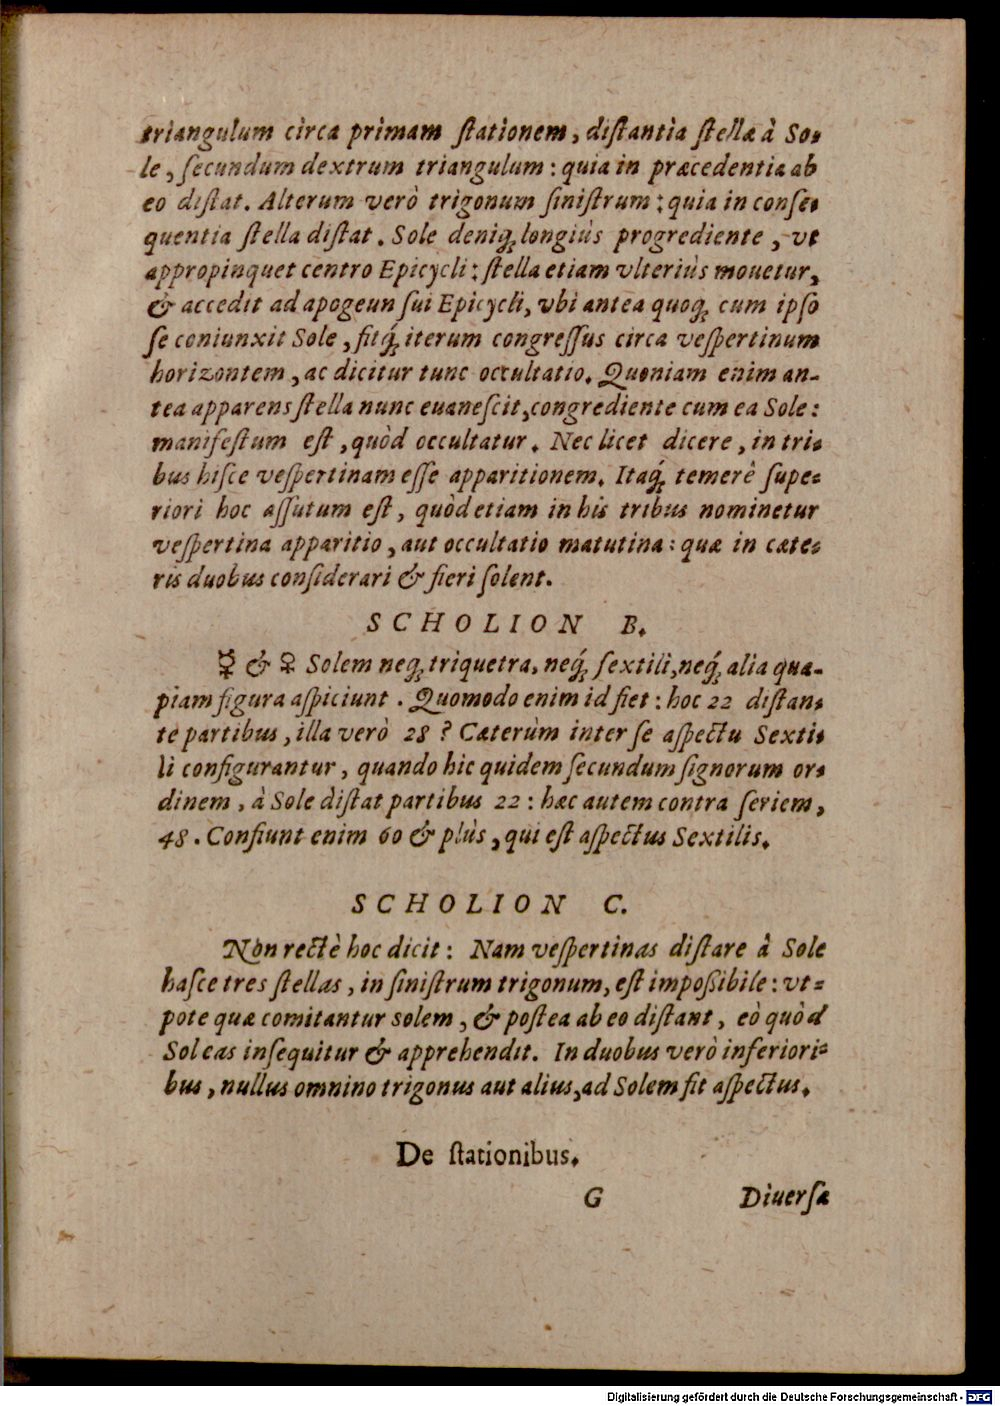 triangulum circa primam ſtationem, diſtantia ſtellæ à So-
le, ſecundum dextrum triangulum: quia in præcedentia ab
eo diſtat. Alterum verò trigonum siniſtrum: quia in conſe-
quentia ſtella diſtat. Sole deniqꝫ longiùs progrediente, vt
appropinquet centro Epicycli: ſtella etiam vlteriùs mouetur,
& accedit ad apogeun ſui Epicycli, vbi antea quoqꝫ cum ipſo
ſe coniunxit Sole, fitqꝫ́ iterum congreſſus circa veſpertinum
horizontem, ac dicitur tunc occultatio. Quoniam enim an-
tea apparens ſtella nunc euaneſcit, congrediente cum ea Sole:
manifeſtum eſt, quòd occultatur. Nec licet dicere, in tri-
bus hiſce veſpertinam eſſe apparitionem. Itaqꝫ́ temerè ſupe-
riori hoc aſſutum eſt, quòd etiam in his tribus nominetur
veſpertina apparitio, aut occultatio matutina: quæ in cæte-
ris duobus conſiderari & fieri ſolent.
SCHOLION B.
☿ & ♀ Solem neqꝫ triquetra, neqꝫ́ ſextili, neqꝫ́ alia qua-
piam figura aſpiciunt. Quomodo enim id fiet: hoc 22 diſtan-
te partibus, illa verò 28? Cæterùm inter ſe aſpectu Sexti-
li configurantur, quando hic quidem ſecundum ſignorum or-
dinem, à Sole diſtat partibus 22: hæc autem contra ſeriem,
48. Confiunt enim 60 & plùs, qui eſt aſpectus Sextilis.
SCHOLION C.
Non rectè hoc dicit: Nam veſpertinas diſtare à Sole
haſce tres ſtellas, in ſiniſtrum trigonum, eſt impoßibile: vt-
pote quæ comitantur solem, & poſtea ab eo diſtant, eò quòd
Sol eas inſequitur & apprehendit. In duobus verò inferiori-
bus, nullus omnino trigonus aut alius, ad Solem fit aſpectus.
De ſtationibus.
G Diuerſæ
Digitalisierung gefördert durch die Deutsche Forschungsgemeinschaft - DFG